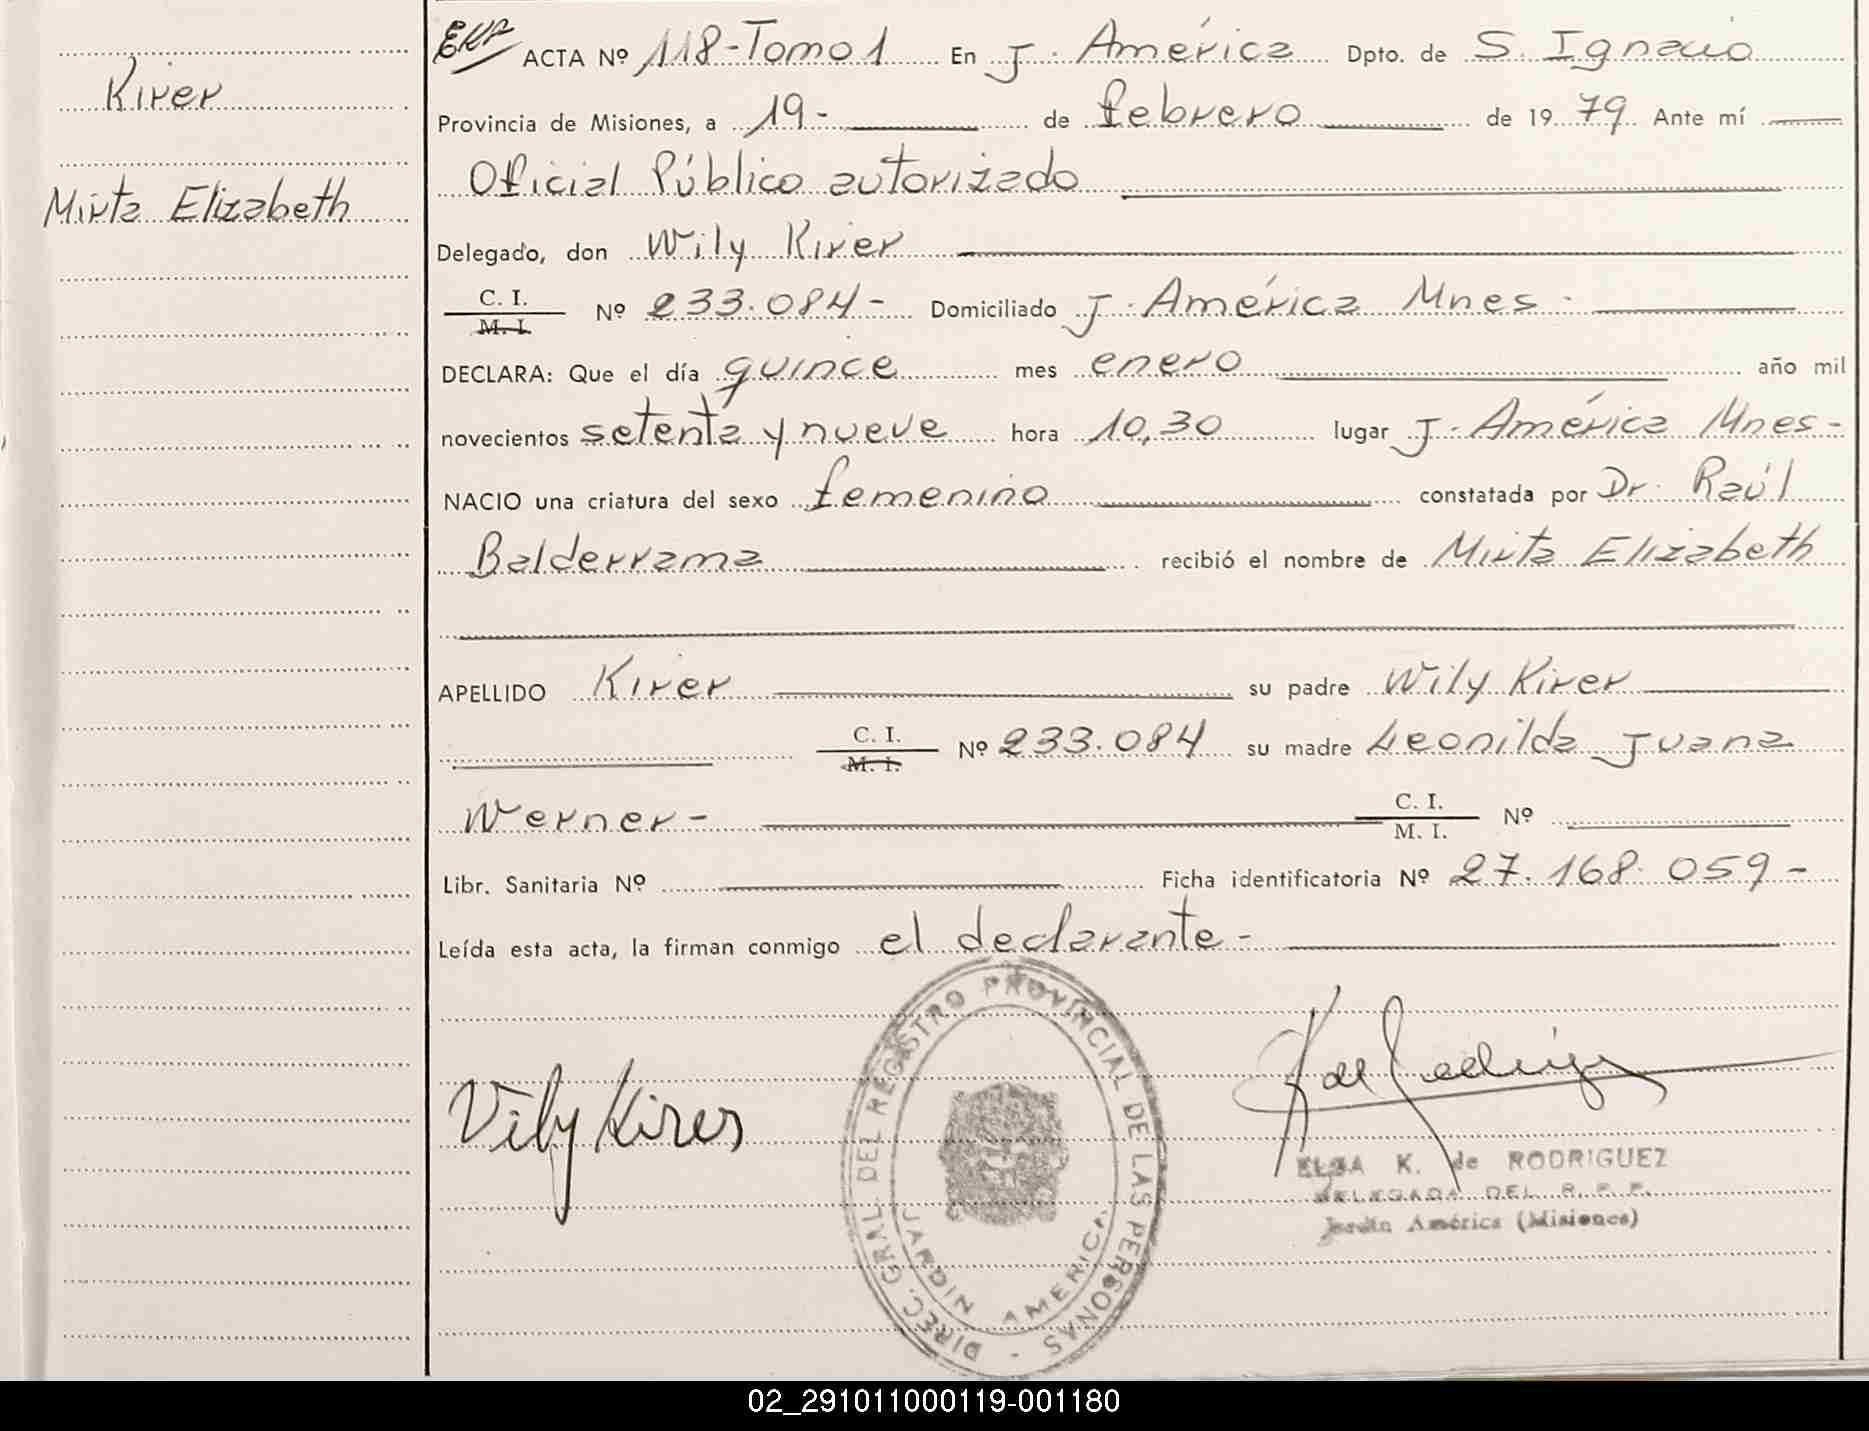 Kirer
Mirta Elizabeth
ACTA Nº 118-Tomo 1 En J. América Dpto. de S. Ignacio
Provincia de Misiones, a 19- de febrero de 1979 Ante mí
Oficial Público autorizado
Delegado, don Wily Kirer
C. I.
M. I.
Nº 233.084- Domiciliado J. América Mnes.
DECLARA: Que el día quince mes enero año mil
novecientos setenta y nueve hora 10,30 lugar J. América Mnes-
NACIO una criatura del sexo femenino constatada por Dr. Raúl
Balderrama recibió el nombre de Mirta Elizabeth
APELLIDO Kirer su padre Wily Kirer
C. I.
M. I.
Nº 233.084 su madre Leonilda Juana
Werner-
C. I.
M. I.
Nº
Libr. Sanitaria Nº Ficha identificatoria Nº 27.168.059-
Leída esta acta, la firman conmigo el declarante-
DIREC. GRAL. DEL REGISTRO PROVINCIAL DE LAS PERSONAS -
JARDIN AMERICA
Vily Kirer
ELSA K. de RODRIGUEZ
DELEGADA DEL R. P. P.
Jardín América (Misiones)
02_291011000119-001180